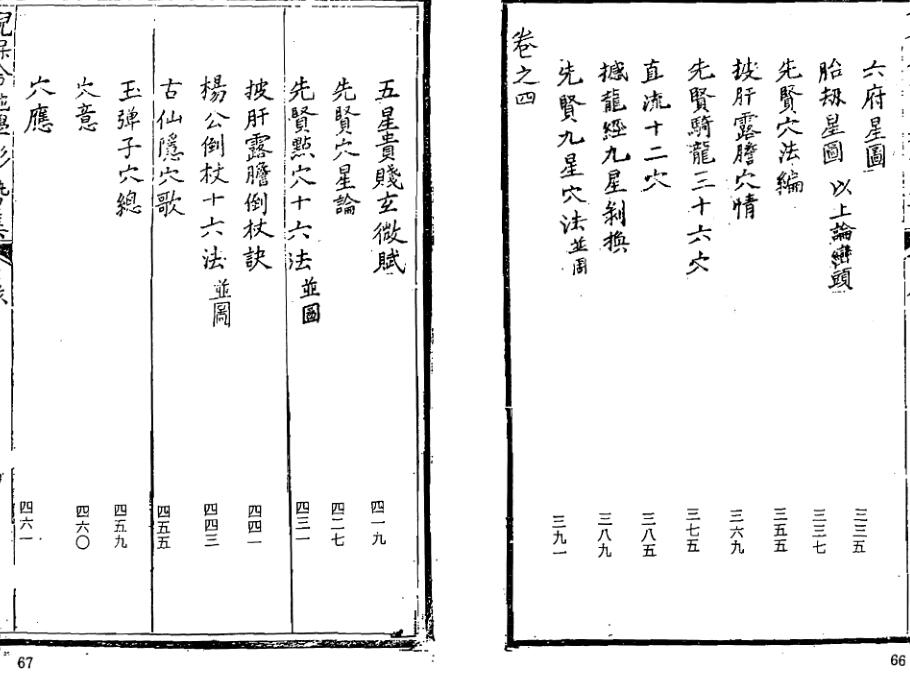 六府星圖 三三五
胎刼星圖 以上論巒頭 三三七
先賢穴法編 三五五
披肝露膽穴情 三六九
先賢騎龍三十六穴 三七五
直流十二穴 三八五
撼龍經九星剝換 三八九
卷之四
先賢九星穴法並圖 三九一
66
五星貴賤玄微賦 四一九
先賢穴星論 四二七
先賢點穴十六法並圖 四三一
披肝露膽倒杖訣 四四一
楊公倒杖十六法並圖 四四三
古仙隱穴歌 四五五
玉彈子穴總 四五九
穴意 四六〇
穴應 四六一
67